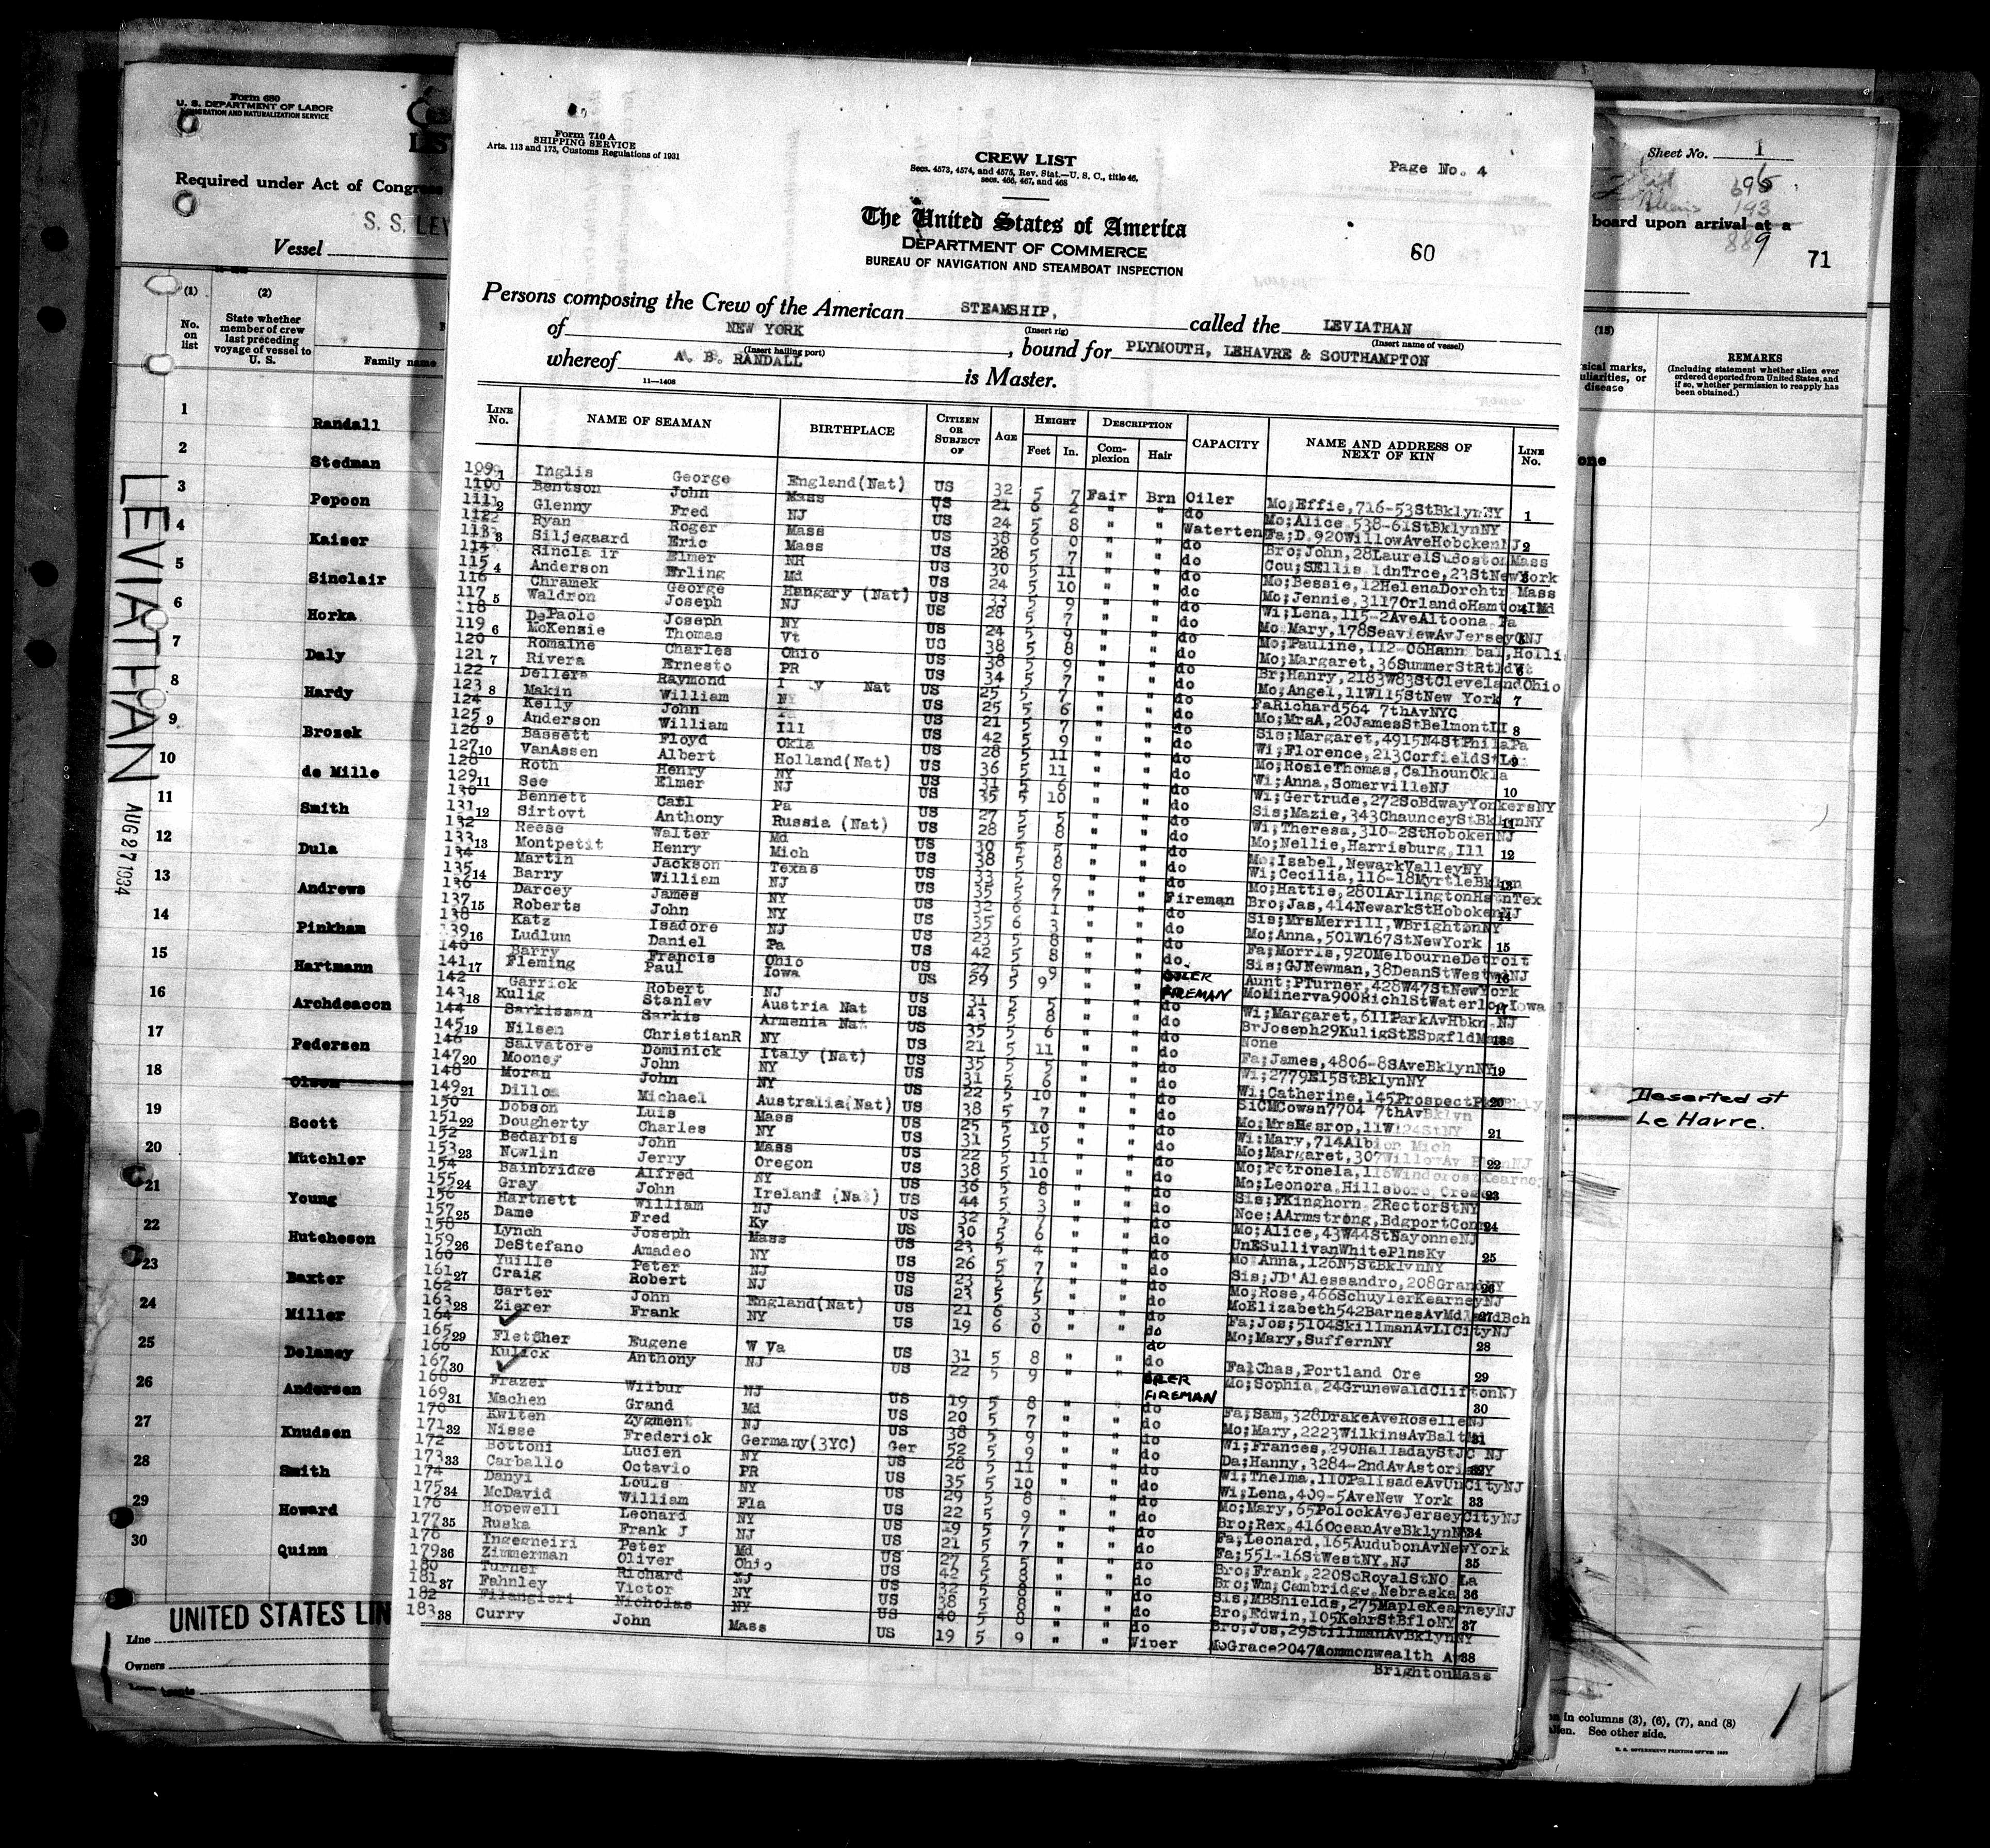 Form 680
U. S. DEPARTMENT OF LABOR
IMMIGRATION AND NATURALIZATION SERVICE
LIS
Required under Act of Congre
S. S. LEV
Vessel
(1)
(2)
No. on list
State whether member of crew last preceding voyage of vessel to U. S.
Family name
1 Randall
2 Stedman
3 Pepoon
4 Kaiser
5 Sinclair
6 Horka
7 Daly
8 Hardy
9 Brozek
10 de Mille
11 Smith
12 Dula
13 Andrews
14 Pinkham
15 Hartmann
16 Archdeacon
17 Pedersen
18 Olsen
19 Scott
20 Mutchler
21 Young
22 Hutcheson
23 Baxter
24 Miller
25 Delaney
26 Andersen
27 Knudsen
28 Smith
29 Howard
30 Quinn
LEVIATHAN
AUG 27 1934
UNITED STATES LIN
Line
Owners
Form 710 A
SHIPPING SERVICE
Arts. 113 and 173, Customs Regulations of 1931
CREW LIST
Secs. 4573, 4574, and 4575, Rev. Stat.—U. S. C., title 46,
secs. 466, 467, and 468
Page No. 4
The United States of America
DEPARTMENT OF COMMERCE
BUREAU OF NAVIGATION AND STEAMBOAT INSPECTION
60
Persons composing the Crew of the American STEAMSHIP, called the LEVIATHAN
(Insert rig)
(Insert name of vessel)
of NEW YORK, bound for PLYMOUTH, LEHAVRE & SOUTHAMPTON
(Insert hailing port)
whereof A. B. RANDALL is Master.
11—1406
LINE No.
NAME OF SEAMAN
BIRTHPLACE
CITIZEN OR SUBJECT OF
AGE
HEIGHT
Feet
In.
DESCRIPTION
Complexion
Hair
CAPACITY
NAME AND ADDRESS OF NEXT OF KIN
LINE No.
109 Inglis George England(Nat) US 32 5 7 Fair Brn Oiler Mo;Effie,716-53StBklynNY
110 Bentson John Mass US 21 6 2 " " do Mo;Alice 538-61StBklynNY
111 Glenny Fred NJ US 24 5 8 " " Watertend Fa;D.920WillowAveHobokenNJ
112 Ryan Roger Mass US 38 6 0 " " do Bro;John,28LaurelStBostonMass
113 Siljegaard Eric Mass US 28 5 7 " " do
114 Sinclair Elmer NH US 30 5 11 " " do Mo;Bessie,12HelenaDorchtr Mass
115 Anderson Erling Md US 24 5 10 " " do Mo;Jennie,3117OrlandoHamtonMd
116 Chramek George Hungary (Nat) US 33 5 9 " " do Wi;Lena,115-2AveAltoona Pa
117 Waldron Joseph NJ US 28 5 7 " " do Mo Mary,178SeaviewAvJerseyCNJ
118 DePaolo Joseph NY US 24 5 9 " " do Mo;Pauline,112-06Hannibal,Holli
119 McKenzie Thomas Vt US 38 5 8 " " do Mo;Margaret,36SummerStRtldVt
120 Romaine Charles Ohio US 38 5 9 " " do Br;Hanry,2183W83StClevelandOhio
121 Rivera Ernesto PR US 34 5 7 " " do Mo;Angel,11W115StNew York
122 Dellera Raymond Nat US 25 5 7 " " do FaRichard564 7thAvNYC
123 Makin William NY US 25 5 6 " " do Mo;MrsA,20JamesStBelmontLI
124 Kelly John US 21 5 7 " " do Sis;Margaret,4915N4StPhilaPa
125 Anderson William Ill US 42 5 9 " " do Wi;Florence,213Corfield
126 Bassett Floyd Okla US 28 5 11 " " do Mo;RosieThomas,CalhounOkla
127 VanAssen Albert Holland(Nat) US 36 5 11 " " do Wi;Anna,SomervilleNJ
128 Roth Henry NY US 31 5 6 " " do Wi;Gertrude,272SoBdwayYonkersNY
129 See Elmer NJ US 35 5 10 " " do Sis;Mazie,343ChaunceyStBklynNY
130 Bennett Carl Pa US 27 5 5 " " do Wi;Theresa,310-2StHobokenNJ
131 Sirtovt Anthony Russia (Nat) US 28 5 8 " " do Mo;Nellie,Harrisburg,Ill
132 Reese Walter Md US 30 5 5 " " do Mo;Isabel,NewarkValleyNY
133 Montpetit Henry Mich US 38 5 8 " " do Wi;Cecilia,116-18MyrtleBklyn
134 Martin Jackson Texas US 33 5 9 " " do Mo;Hattie,2801ArlingtonHstnTex
135 Barry William NJ US 35 5 7 " " Fireman Bro;Jas,414NewarkStHobokenNJ
136 Darcey James NY US 32 6 1 " " do Sis;MrsMerrill,WBrightonNY
137 Roberts John NY US 35 6 3 " " do Mo;Anna,501W167StNewYork
138 Katz Isadore NJ US 23 5 8 " " do Fa;Morris,920MelbourneDetroit
139 Ludlum Daniel Pa US 42 5 8 " " do Sis;GJNewman,38DeanStWestwdNJ
140 Barry Francis Ohio US 27 5 9 " " OILER Aunt;PTurner,428W47StNewYork
141 Fleming Paul Iowa US 29 5 9 " " FIREMAN MoMinerva900RichlStWaterlooIowa
142 Garrick Robert NJ US 31 5 5 " " do Wi;Margaret,611ParkAvHbkn NJ
143 Kulig Stanley Austria Nat US 43 5 8 " " do BrJoseph29KuligStESpgfldMass
144 Sarkissan Sarkis Armenia Nat US 35 5 6 " " do None
145 Nilsen ChristianR NY US 21 5 11 " " do Fa;James,4806-8SAveBklynNY
146 Salvatore Dominick Italy (Nat) US 35 5 5 " " do Wi;2779E15StBklynNY
147 Mooney John NY US 31 5 6 " " do Wi;Catherine,145Prospect
148 Moran John NY US 22 5 10 " " do SiCMCowan7704 7thAvBklyn
149 Dillon Michael Australia(Nat) US 38 5 7 " " do Mo;MrsHesrop,11W124StNY
150 Dobson Luis Mass US 25 5 10 " " do Wi;Mary,714Albion Mich
151 Dougherty Charles NY US 31 5 5 " " do Mo;Margaret,307WillowAv HbknNJ
152 Bedarbis John Mass US 22 5 11 " " do Mo;Petronela,
153 Nowlin Jerry Oregon US 38 5 10 " " do Mo;Leonora,Hillsboro Oregon
154 Bainbridge Alfred NY US 36 5 8 " " do Sis;FKinghorn 2RectorStNY
155 Gray John Ireland (Nat) US 44 5 3 " " do Nce;AArmstrong,BdgportConn
156 Hartnett William NJ US 32 5 7 " " do Mo;Alice,43W44StBayonneNJ
157 Dame Fred Ky US 30 5 6 " " do UnESullivanWhitePlnsKy
158 Lynch Joseph Mass US 23 5 4 " " do Mo Anna,126N5StBklynNY
159 DeStefano Amadeo NY US 26 5 7 " " do Sis;JD'Alessandro,208GrandNY
160 Yuille Peter NJ US 23 5 7 " " do Mo;Rose,466SchuylerKearneyNJ
161 Craig Robert NJ US 23 5 5 " " do MoElizabeth542BarnesAvMdlandBch
162 Carter John England(Nat) US 21 6 3 " " do Fa;Jos;5104SkillmanAvLICityNJ
163 Zierer Frank NY US 19 6 0 " " do Mo;Mary,SuffernNY
164
165 Fletcher Eugene W Va US 31 5 8 " " do Fa;Chas,Portland Ore
166 Kulick Anthony NJ US 22 5 9 " " OILER Mo;Sophia 24GrunewaldCliftonNJ
167
168 Frazer Wilbur NJ US 19 5 8 " " FIREMAN Fa;Sam,328DrakeAveRoselleNJ
169 Machen Grand Md US 20 5 7 " " do Mo;Mary,2223WilkinsAvBaltMd
170 Kwiten Zygment NJ US 38 5 9 " " do Wi;Frances,290HalladayStJC NJ
171 Nisse Frederick Germany(3YC) Ger 52 5 9 " " do Da;Hanny,3284-2ndAvAstoriaNY
172 Bottoni Lucien NY US 28 5 11 " " do Wi;Thelma,110PalisadeAvUnCityNJ
173 Carballo Octavio PR US 35 5 10 " " do Wi;Lena,409-5AveNew York
174 Danyl Louis NY US 29 5 8 " " do Mo;Mary,65PolockAveJerseyCityNJ
175 McDavid William Fla US 22 5 9 " " do Bro;Rex,416OceanAveBklynNY
176 Hopewell Leonard NY US 19 5 7 " " do Fa;Leonard,165AudubonAvNewYork
177 Ruska Frank J NJ US 21 5 7 " " do Fa;551-16StWestNY,NJ
178 Ingegneiri Peter Md US 27 5 5 " " do Bro;Frank,220SoRoyalStNO La
179 Zimmerman Oliver Ohio US 42 5 8 " " do Bro;Wm;Cambridge,Nebraska
180 Turner Richard NJ US 32 5 8 " " do Sis;MBShields,275MapleKearneyNJ
181 Fahnley Victor NY US 38 5 8 " " do Bro;Edwin,105KehrStBfloNY
182 Filangieri Nicholas NY US 40 5 8 " " do Bro;Jos,29StillmanAvBklynNY
183 Curry John Mass US 19 5 9 " " Wiper MoGrace2047Commonwealth Av
BrightonMass
Sheet No. 1
board upon arrival at a
71
(15)
REMARKS
(Including statement whether alien ever ordered deported from United States, and if so, whether permission to reapply has been obtained.)
sical marks,
uliarities, or
disease
one
Deserted at
Le Havre.
in columns (3), (6), (7), and (8)
See other side.
U. S. GOVERNMENT PRINTING OFFICE